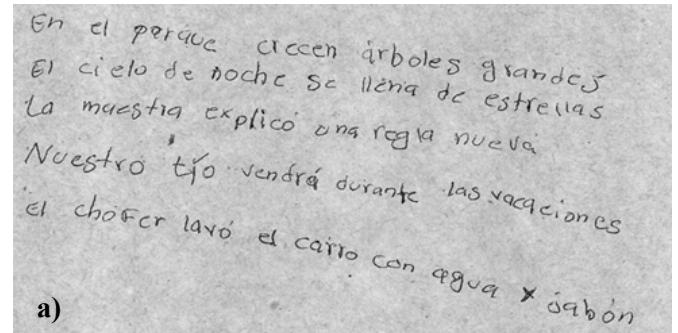 En el parque crecen árboles grandes
El cielo de noche se llena de estrellas
La maestra explicó una regla nueva
Nuestro tío vendrá durante las vacaciones
El chofer lavó el carro con agua y jabón
a)